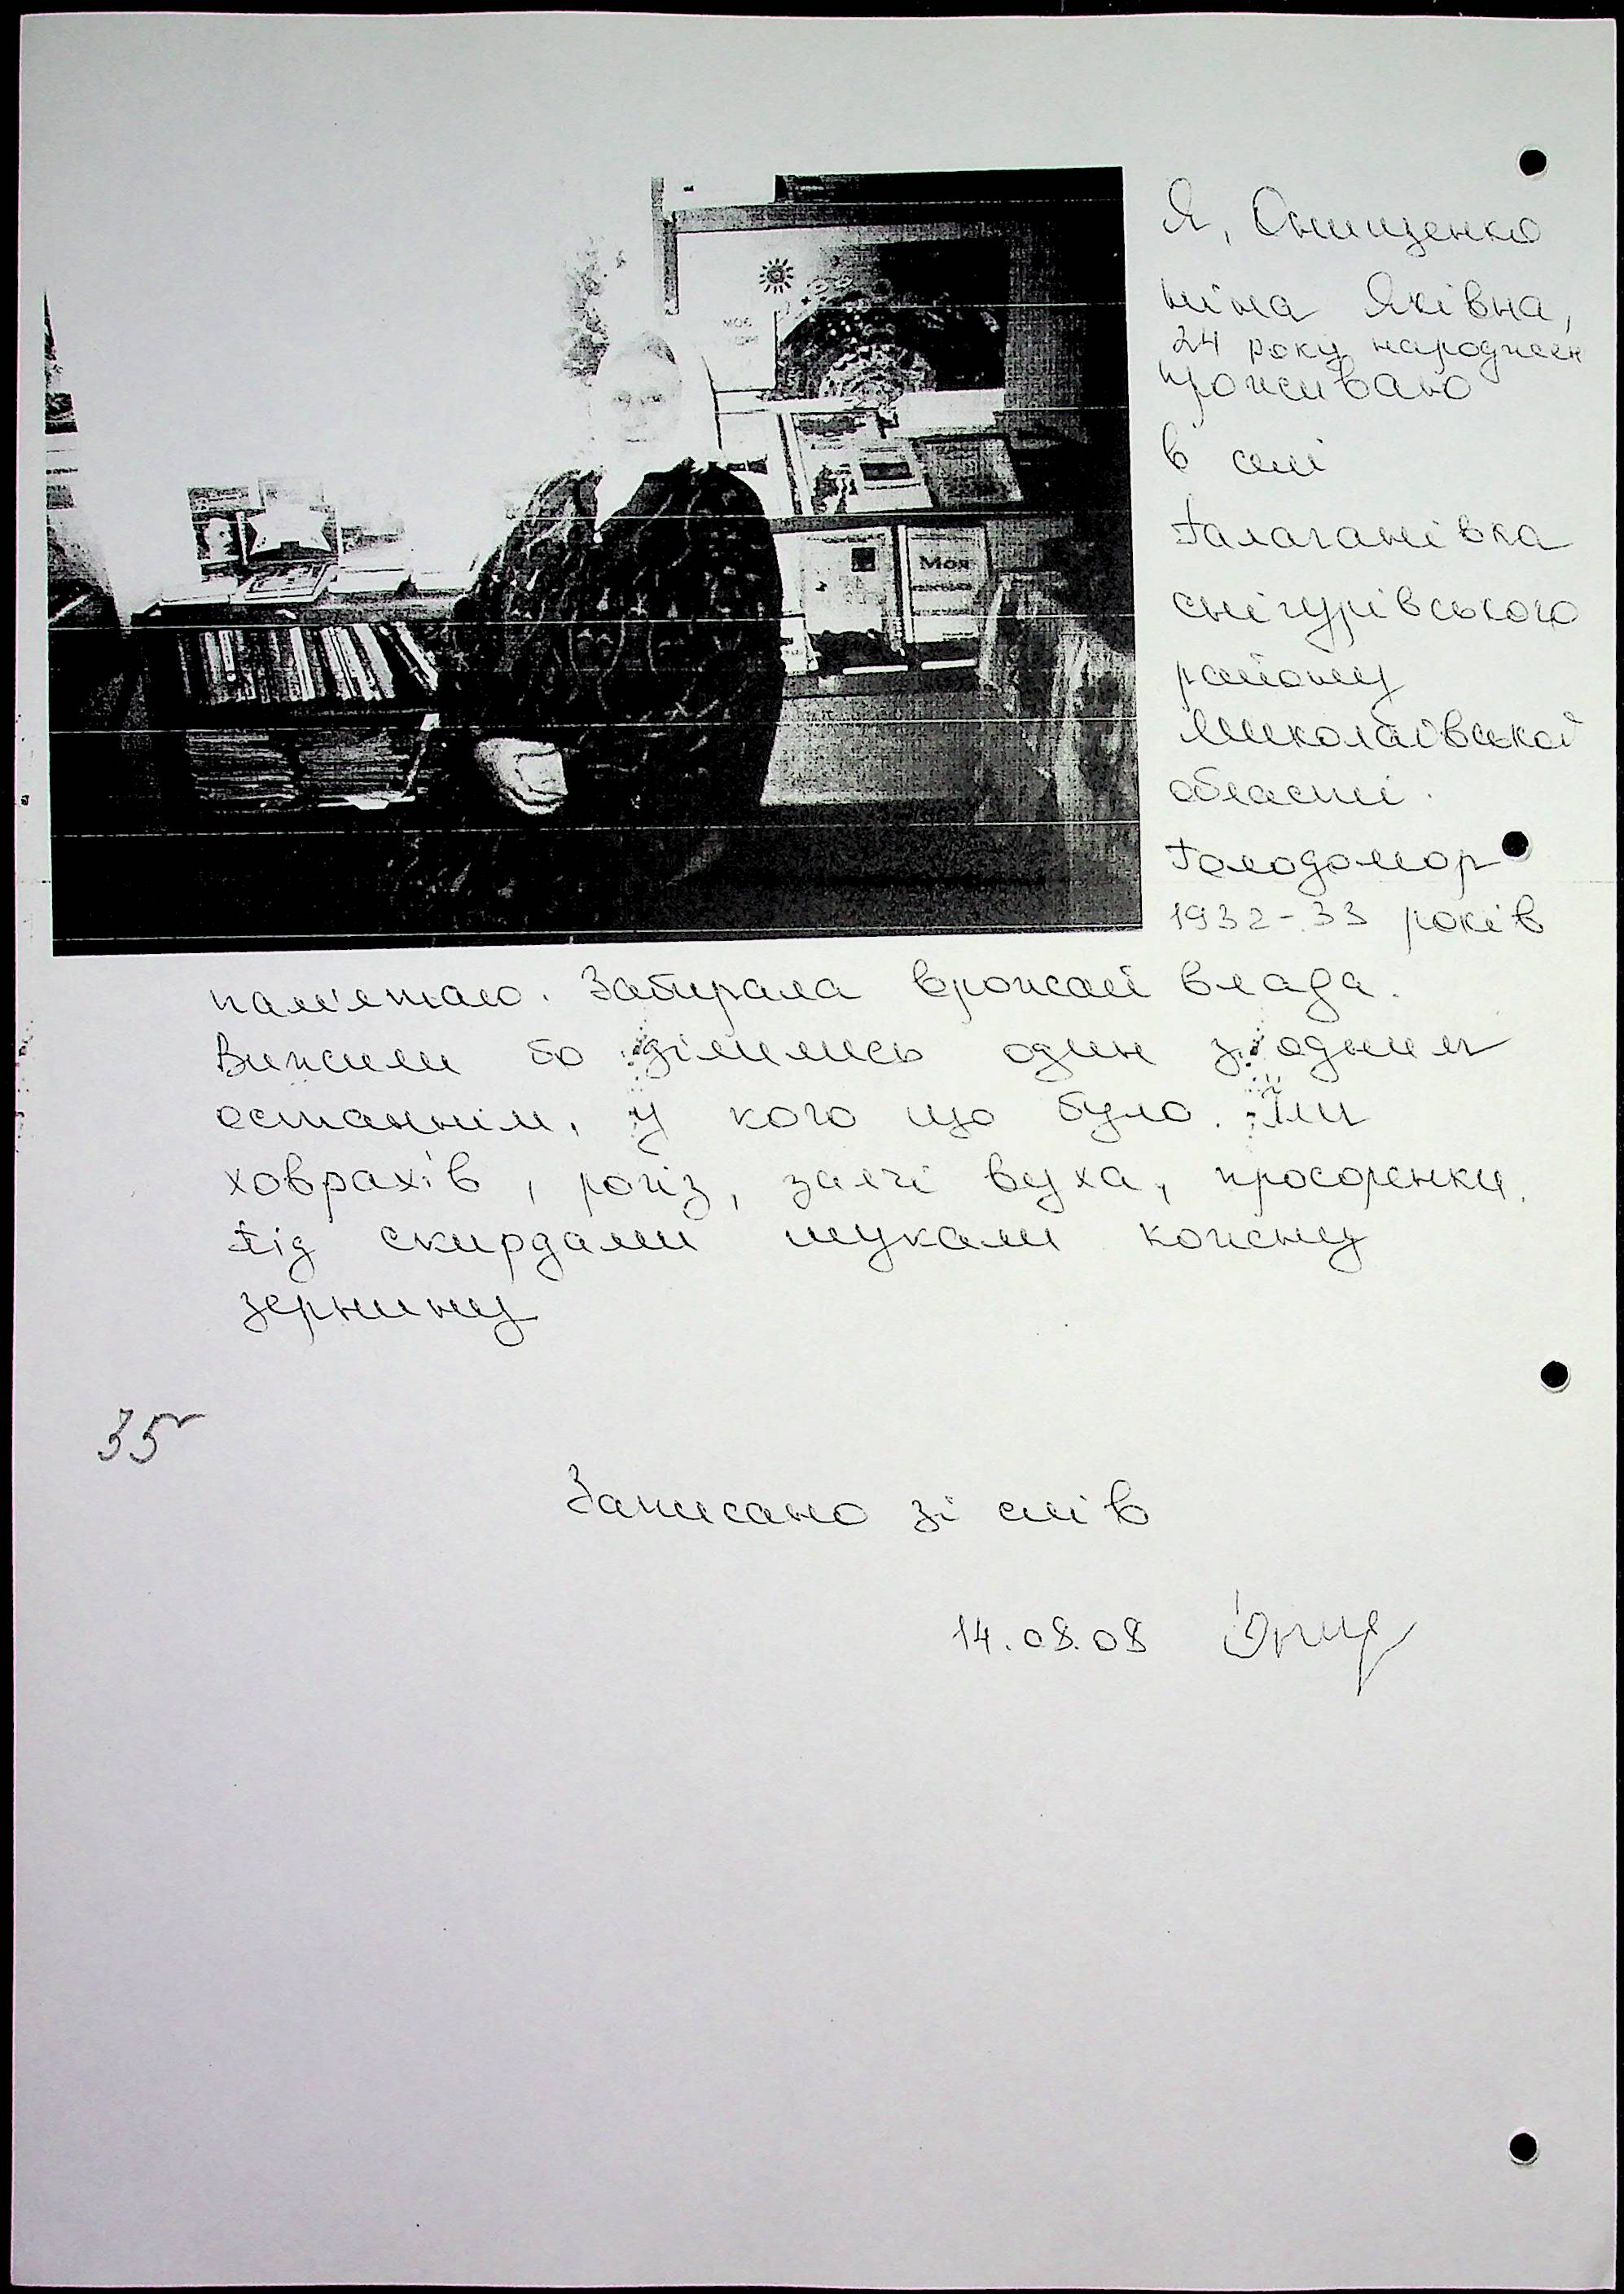 Я, Онищенко
Ніна Яківна,
24 року народжен
проживаю
в селі
Галаганівка
Снігурівського
району
Миколаївської
області.
Голодомор
1932-33 років
пам'ятаю. Забирала врожай влада.
Вижили бо ділились один з одним
останнім, у кого що було. Їли
ховрахів, рогіз, заячі вуха, просоренки.
Під скирдами шукали кожну
зернину
35
Записано зі слів
14.08.08 Онищ
Моя